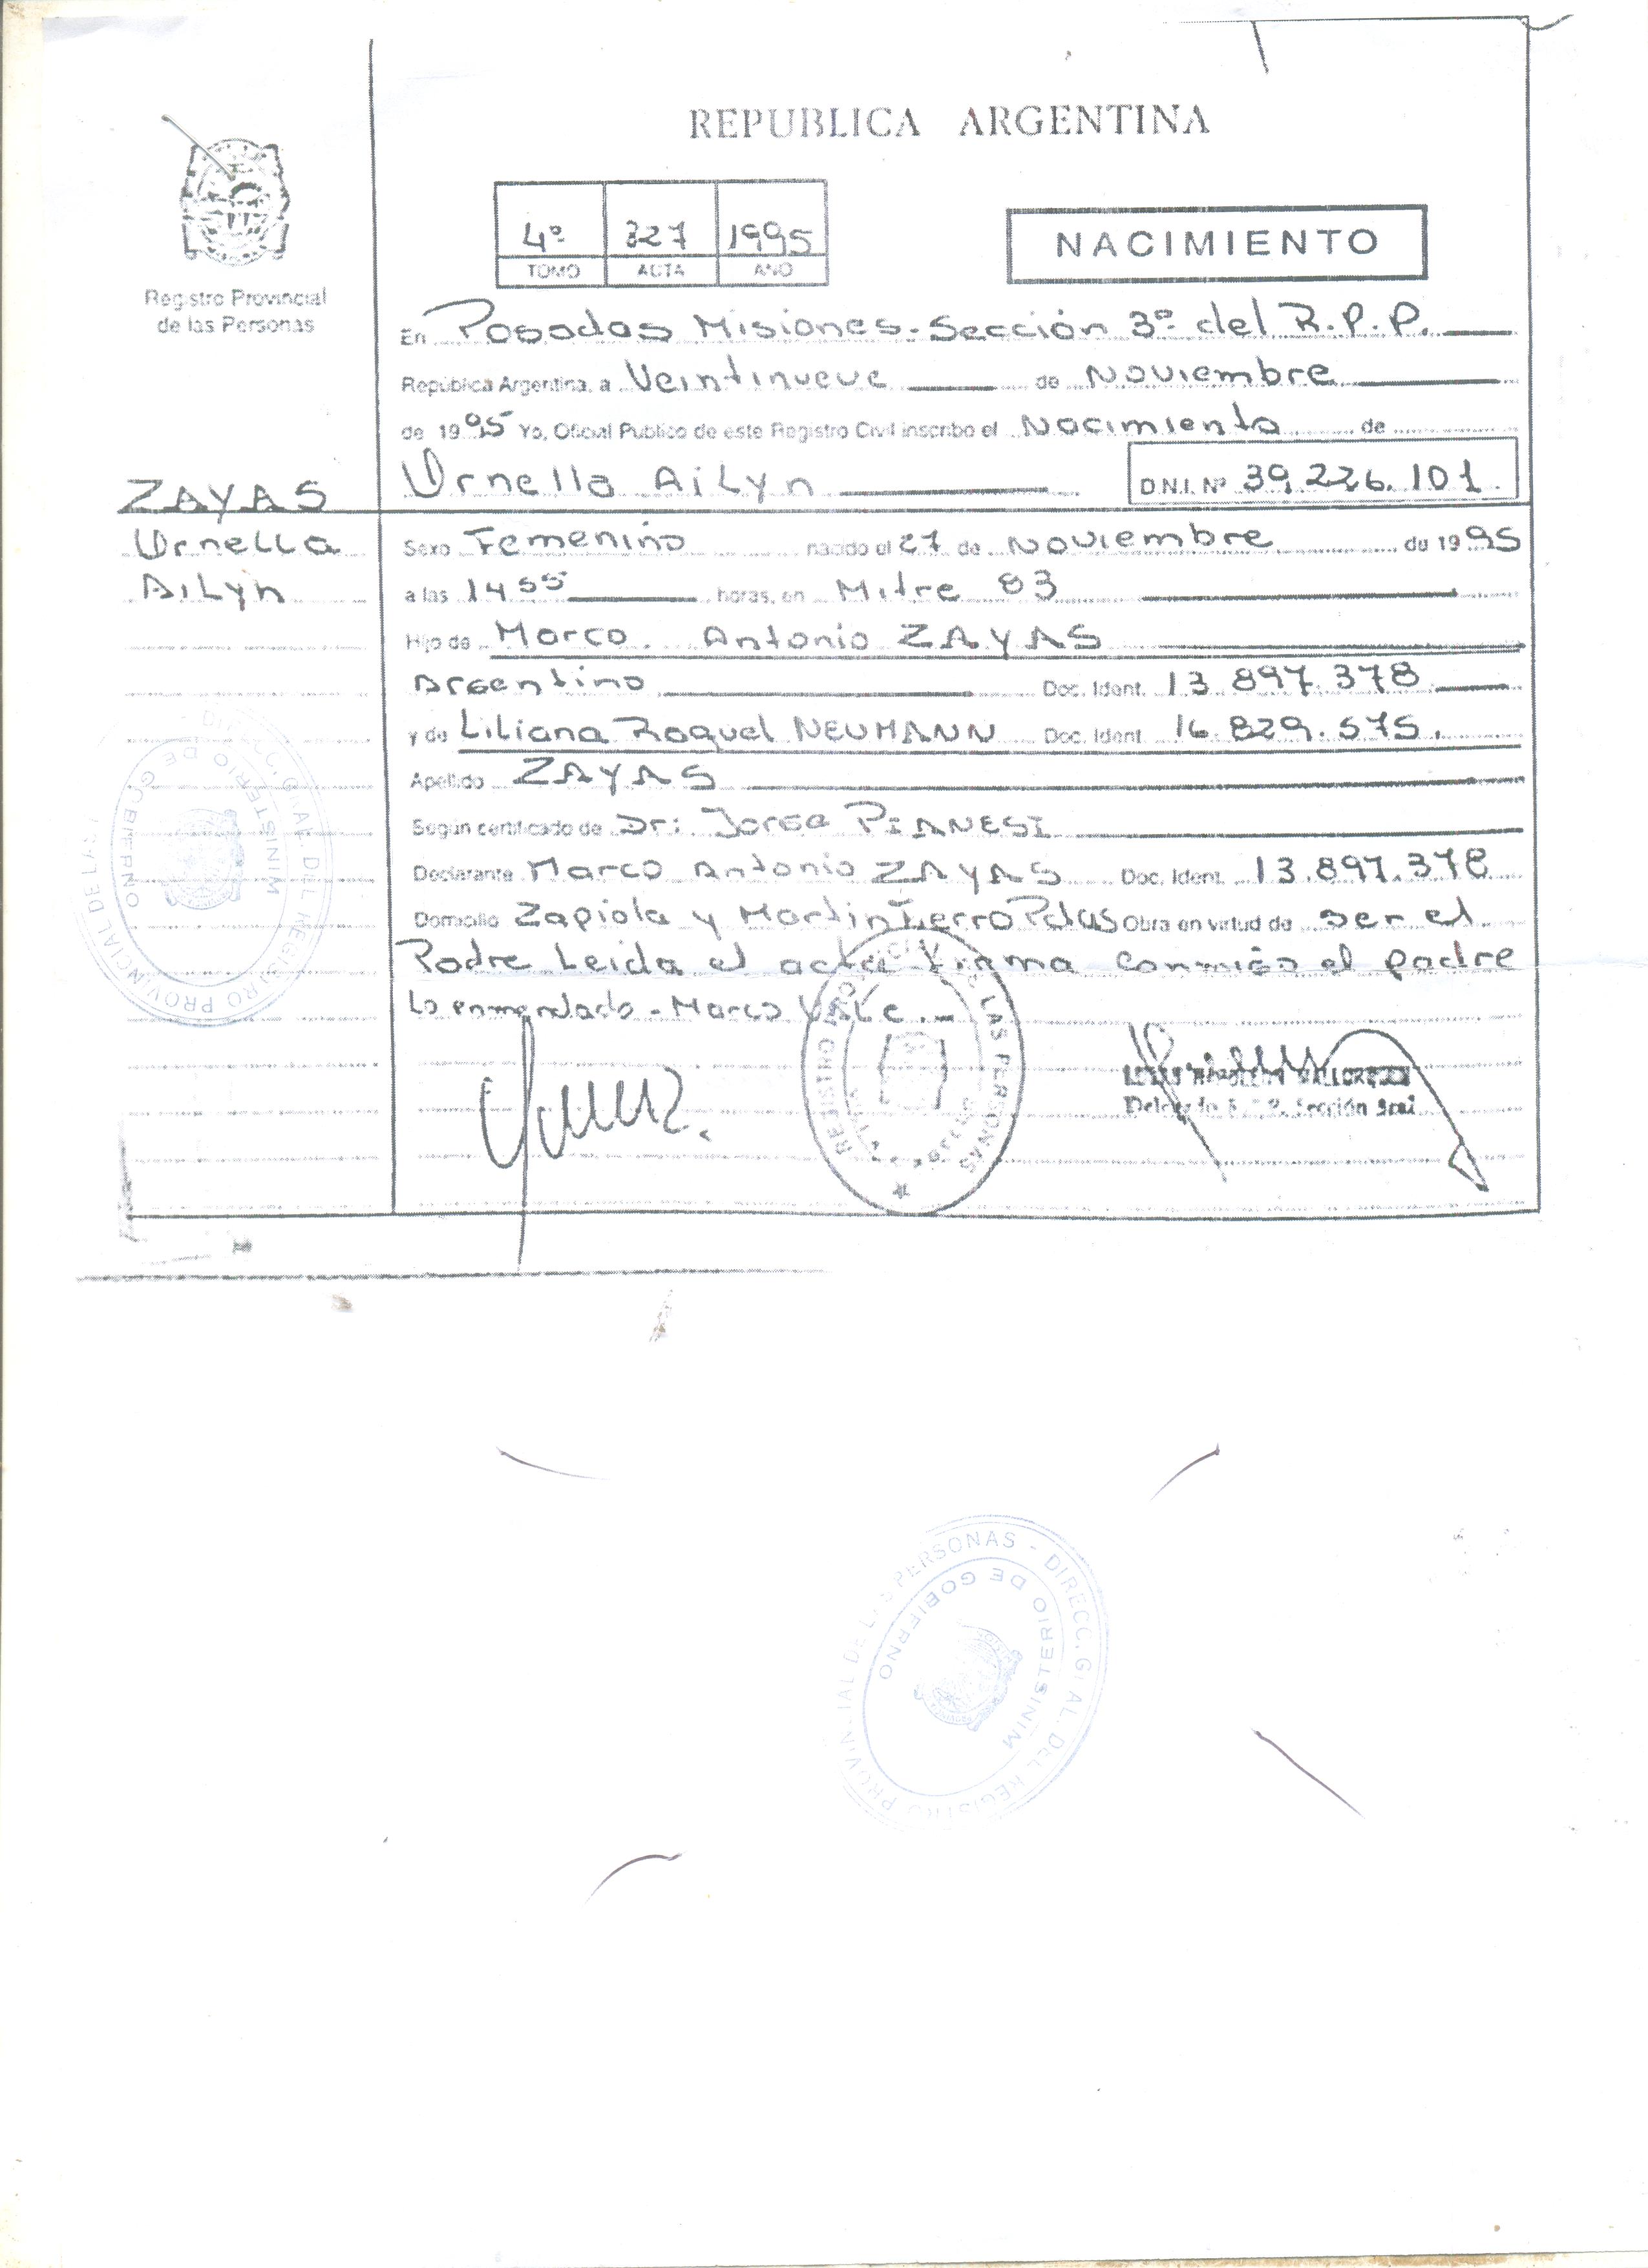 REPUBLICA ARGENTINA
4º 327 1995
TOMO ACTA AÑO
NACIMIENTO
Registro Provincial
de las Personas
En Posadas Misiones - Sección 3ª del R.P.P.
República Argentina, a Veintinueve de Noviembre
de 1995 Yo, Oficial Público de este Registro Civil inscribo el Nacimiento de
Urnella AiLyn D.N.I. Nº 39.226.101
ZAYAS
Urnella
AiLyn
Sexo Femenino nacido el 27 de Noviembre de 1995
a las 1455 horas, en Mitre 83
Hijo de Marco Antonio ZAYAS
Argentino Doc. Ident. 13 897.378
y de Liliana Raquel NEUMANN Doc. Ident. 16.829.575.
Apellido ZAYAS
Según certificado de Dr: Jorge PIANESI
Declarante Marco Antonio ZAYAS Doc. Ident. 13.897.378
Domicilio Zapiola y Martin Fierro Pdas Obra en virtud de ser el
Padre Leida el acta Firma conmigo el padre
Lo enmendado - Marco Vale.-
REGISTRO PROVINCIAL DE LAS PERSONAS
Sección
DIRECC. GRAL. DEL REGISTRO PROVINCIAL DE LAS
MINISTERIO DE GOBIERNO
PERSONAS - DIRECC. GRAL. DEL REGISTRO PROVINCIAL DE LAS
MINISTERIO DE GOBIERNO